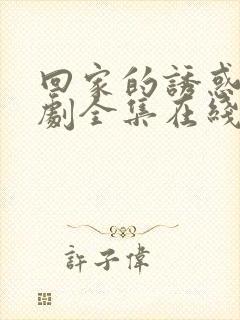 回家的誘惑
劇全集在綫
許子偉